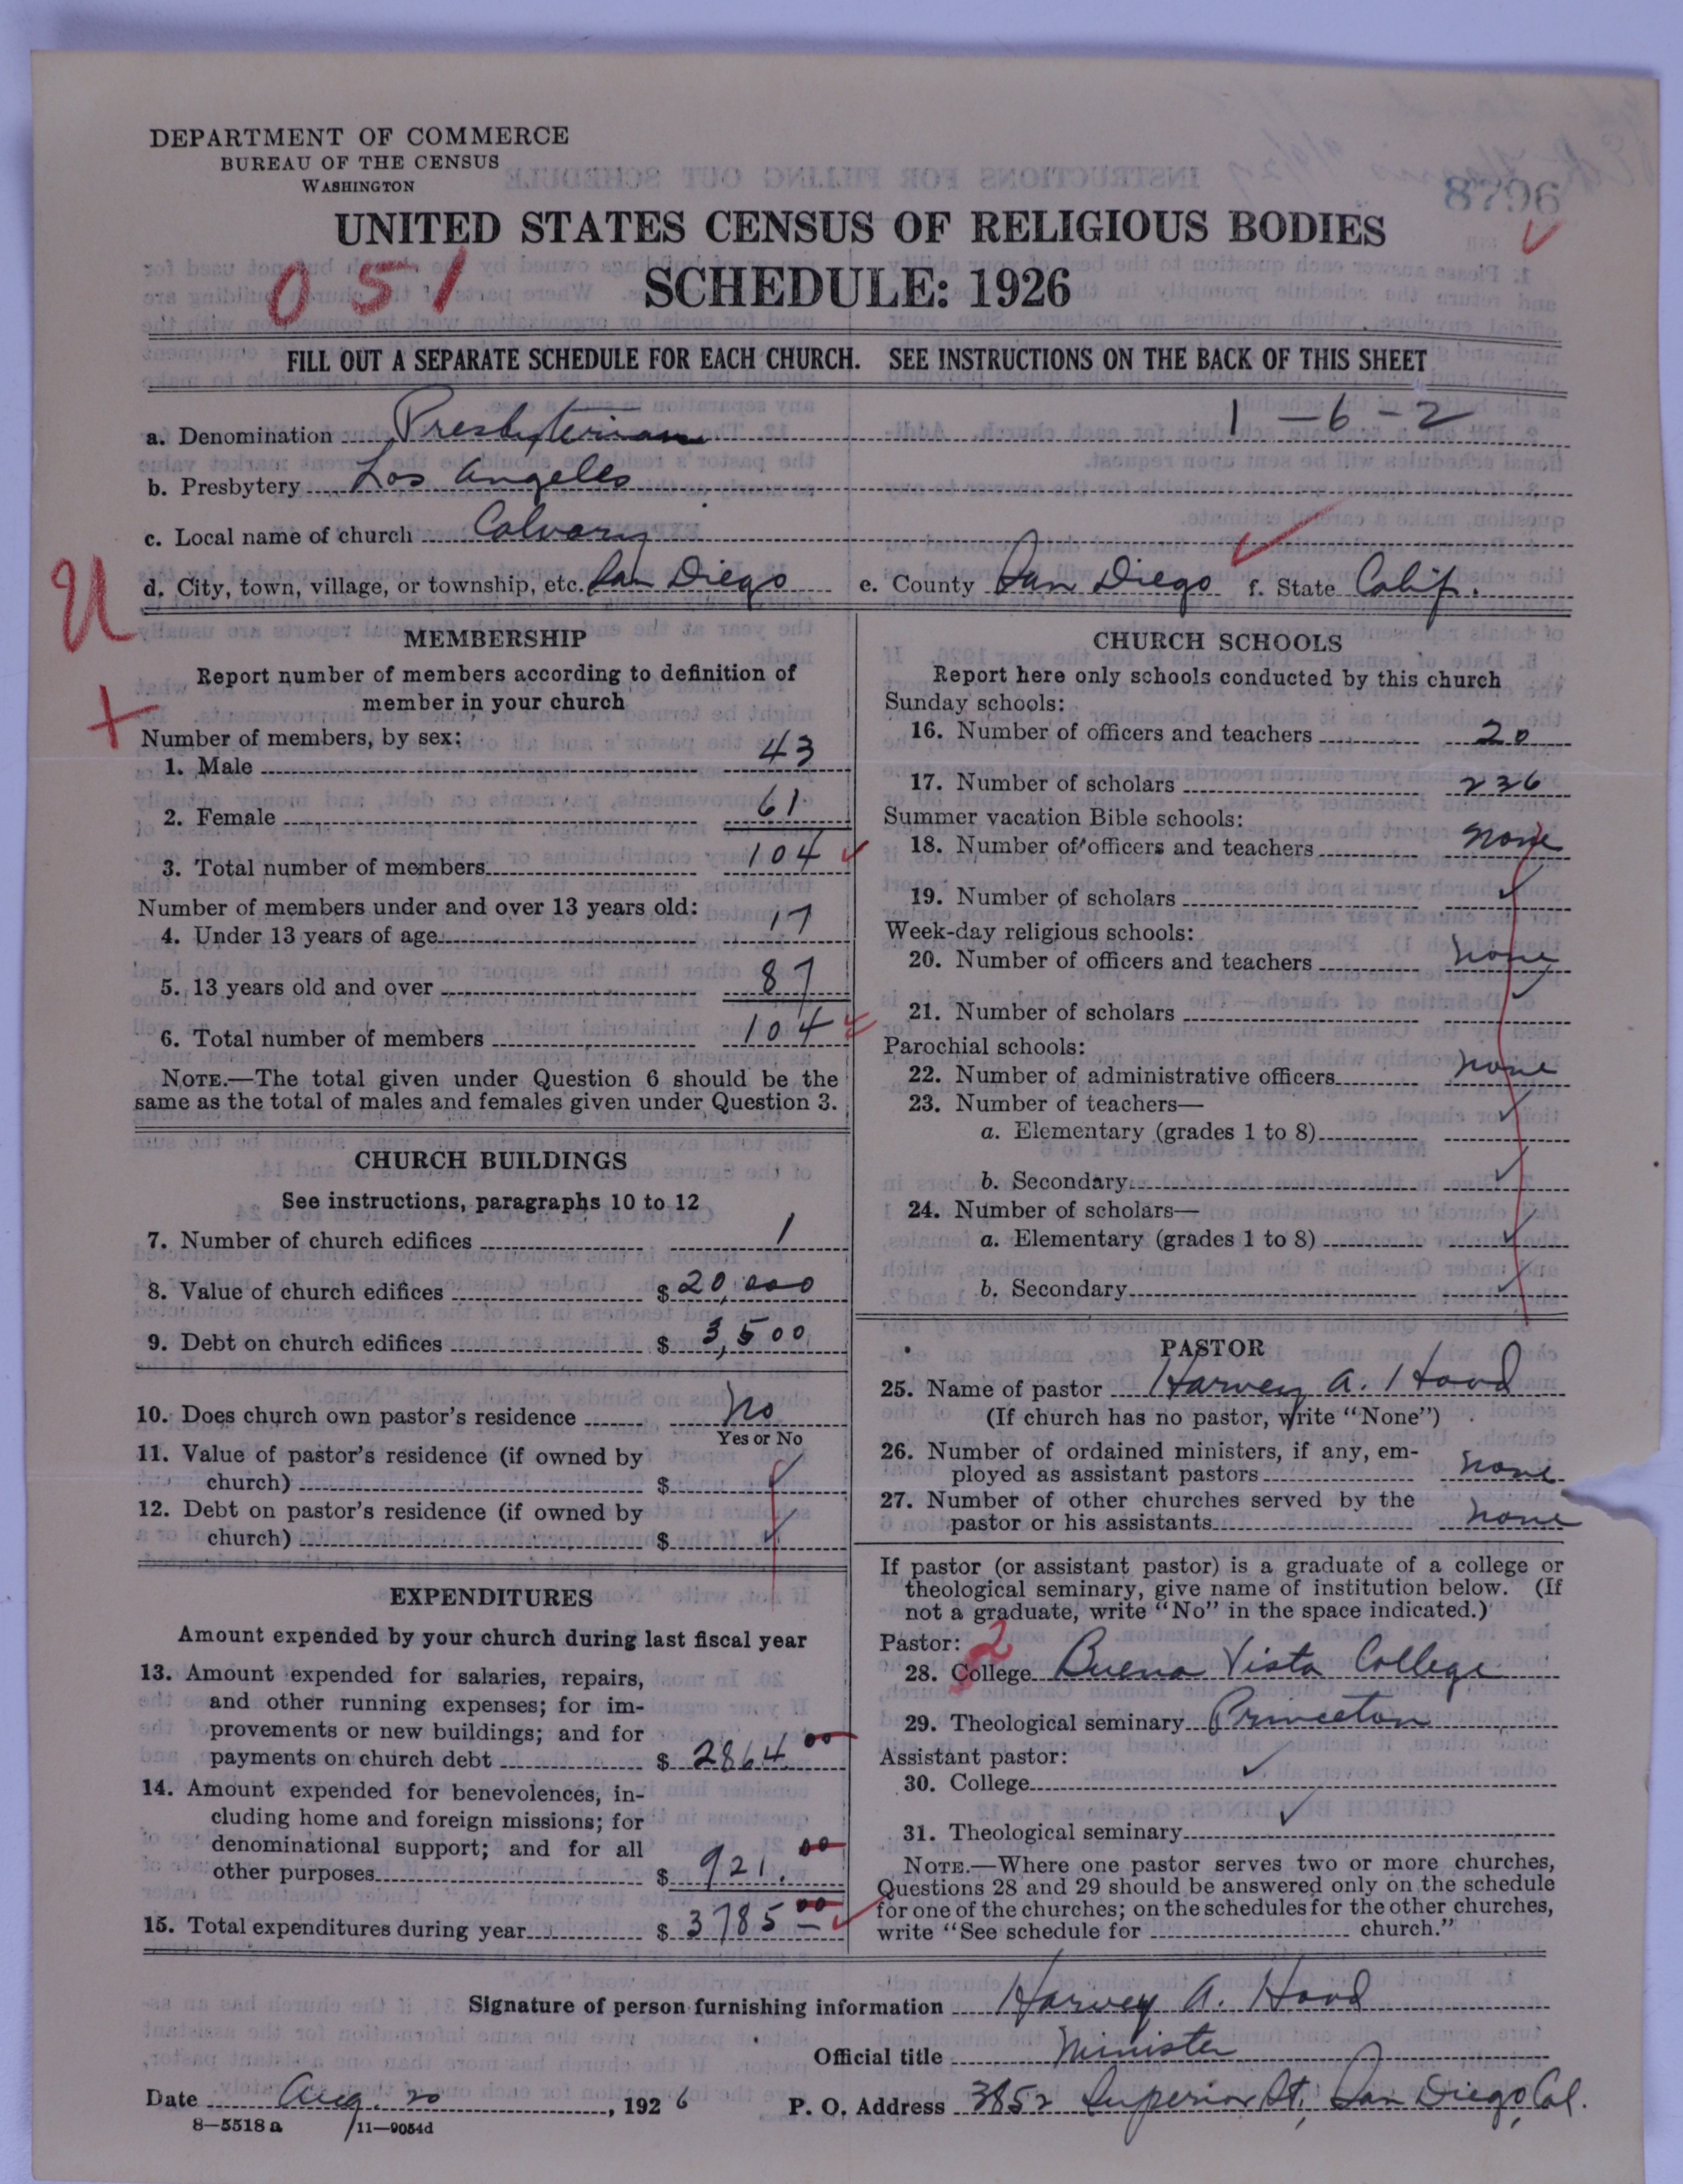 DEPARTMENT OF COMMERCE
BUREAU OF THE CENSUS
WASHINGTON
8796
UNITED STATES CENSUS OF RELIGIOUS BODIES
051
SCHEDULE: 1926
FILL OUT A SEPARATE SCHEDULE FOR EACH CHURCH. SEE INSTRUCTIONS ON THE BACK OF THIS SHEET
1-6-2
a. Denomination Presbyterian
b. Presbytery Los Angeles
c. Local name of church Calvary
d. City, town, village, or township, etc. San Diego e. County San Diego f. State Calif.
U
+
MEMBERSHIP
Report number of members according to definition of
member in your church
Number of members, by sex:
1. Male 43
2. Female 61
3. Total number of members 104
Number of members under and over 13 years old:
4. Under 13 years of age 17
5. 13 years old and over 87
6. Total number of members 104
NOTE.—The total given under Question 6 should be the
same as the total of males and females given under Question 3.
CHURCH BUILDINGS
See instructions, paragraphs 10 to 12
7. Number of church edifices 1
8. Value of church edifices $ 20,000
9. Debt on church edifices $ 3,500
10. Does church own pastor's residence No
Yes or No
11. Value of pastor's residence (if owned by
church) $ ✓
12. Debt on pastor's residence (if owned by
church) $ ✓
EXPENDITURES
Amount expended by your church during last fiscal year
13. Amount expended for salaries, repairs,
and other running expenses; for im-
provements or new buildings; and for
payments on church debt $ 2864.00
14. Amount expended for benevolences, in-
cluding home and foreign missions; for
denominational support; and for all
other purposes $ 921.00
15. Total expenditures during year $ 3785.00
CHURCH SCHOOLS
Report here only schools conducted by this church
Sunday schools:
16. Number of officers and teachers 20
17. Number of scholars 236
Summer vacation Bible schools:
18. Number of officers and teachers none
19. Number of scholars ✓
Week-day religious schools:
20. Number of officers and teachers none
21. Number of scholars ✓
Parochial schools:
22. Number of administrative officers none
23. Number of teachers—
a. Elementary (grades 1 to 8) ✓
b. Secondary ✓
24. Number of scholars—
a. Elementary (grades 1 to 8) ✓
b. Secondary ✓
PASTOR
25. Name of pastor Harvey A. Hood
(If church has no pastor, write "None")
26. Number of ordained ministers, if any, em-
ployed as assistant pastors none
27. Number of other churches served by the
pastor or his assistants none
If pastor (or assistant pastor) is a graduate of a college or
theological seminary, give name of institution below. (If
not a graduate, write "No" in the space indicated.)
Pastor: 2
28. College Buena Vista College
29. Theological seminary Princeton
Assistant pastor:
30. College ✓
31. Theological seminary ✓
NOTE.—Where one pastor serves two or more churches,
Questions 28 and 29 should be answered only on the schedule
for one of the churches; on the schedules for the other churches,
write "See schedule for church."
Signature of person furnishing information Harvey A. Hood
Official title Minister
Date Aug. 20, 1926 P. O. Address 3852 Superior St., San Diego, Cal.
8—5518 a 11—9054d